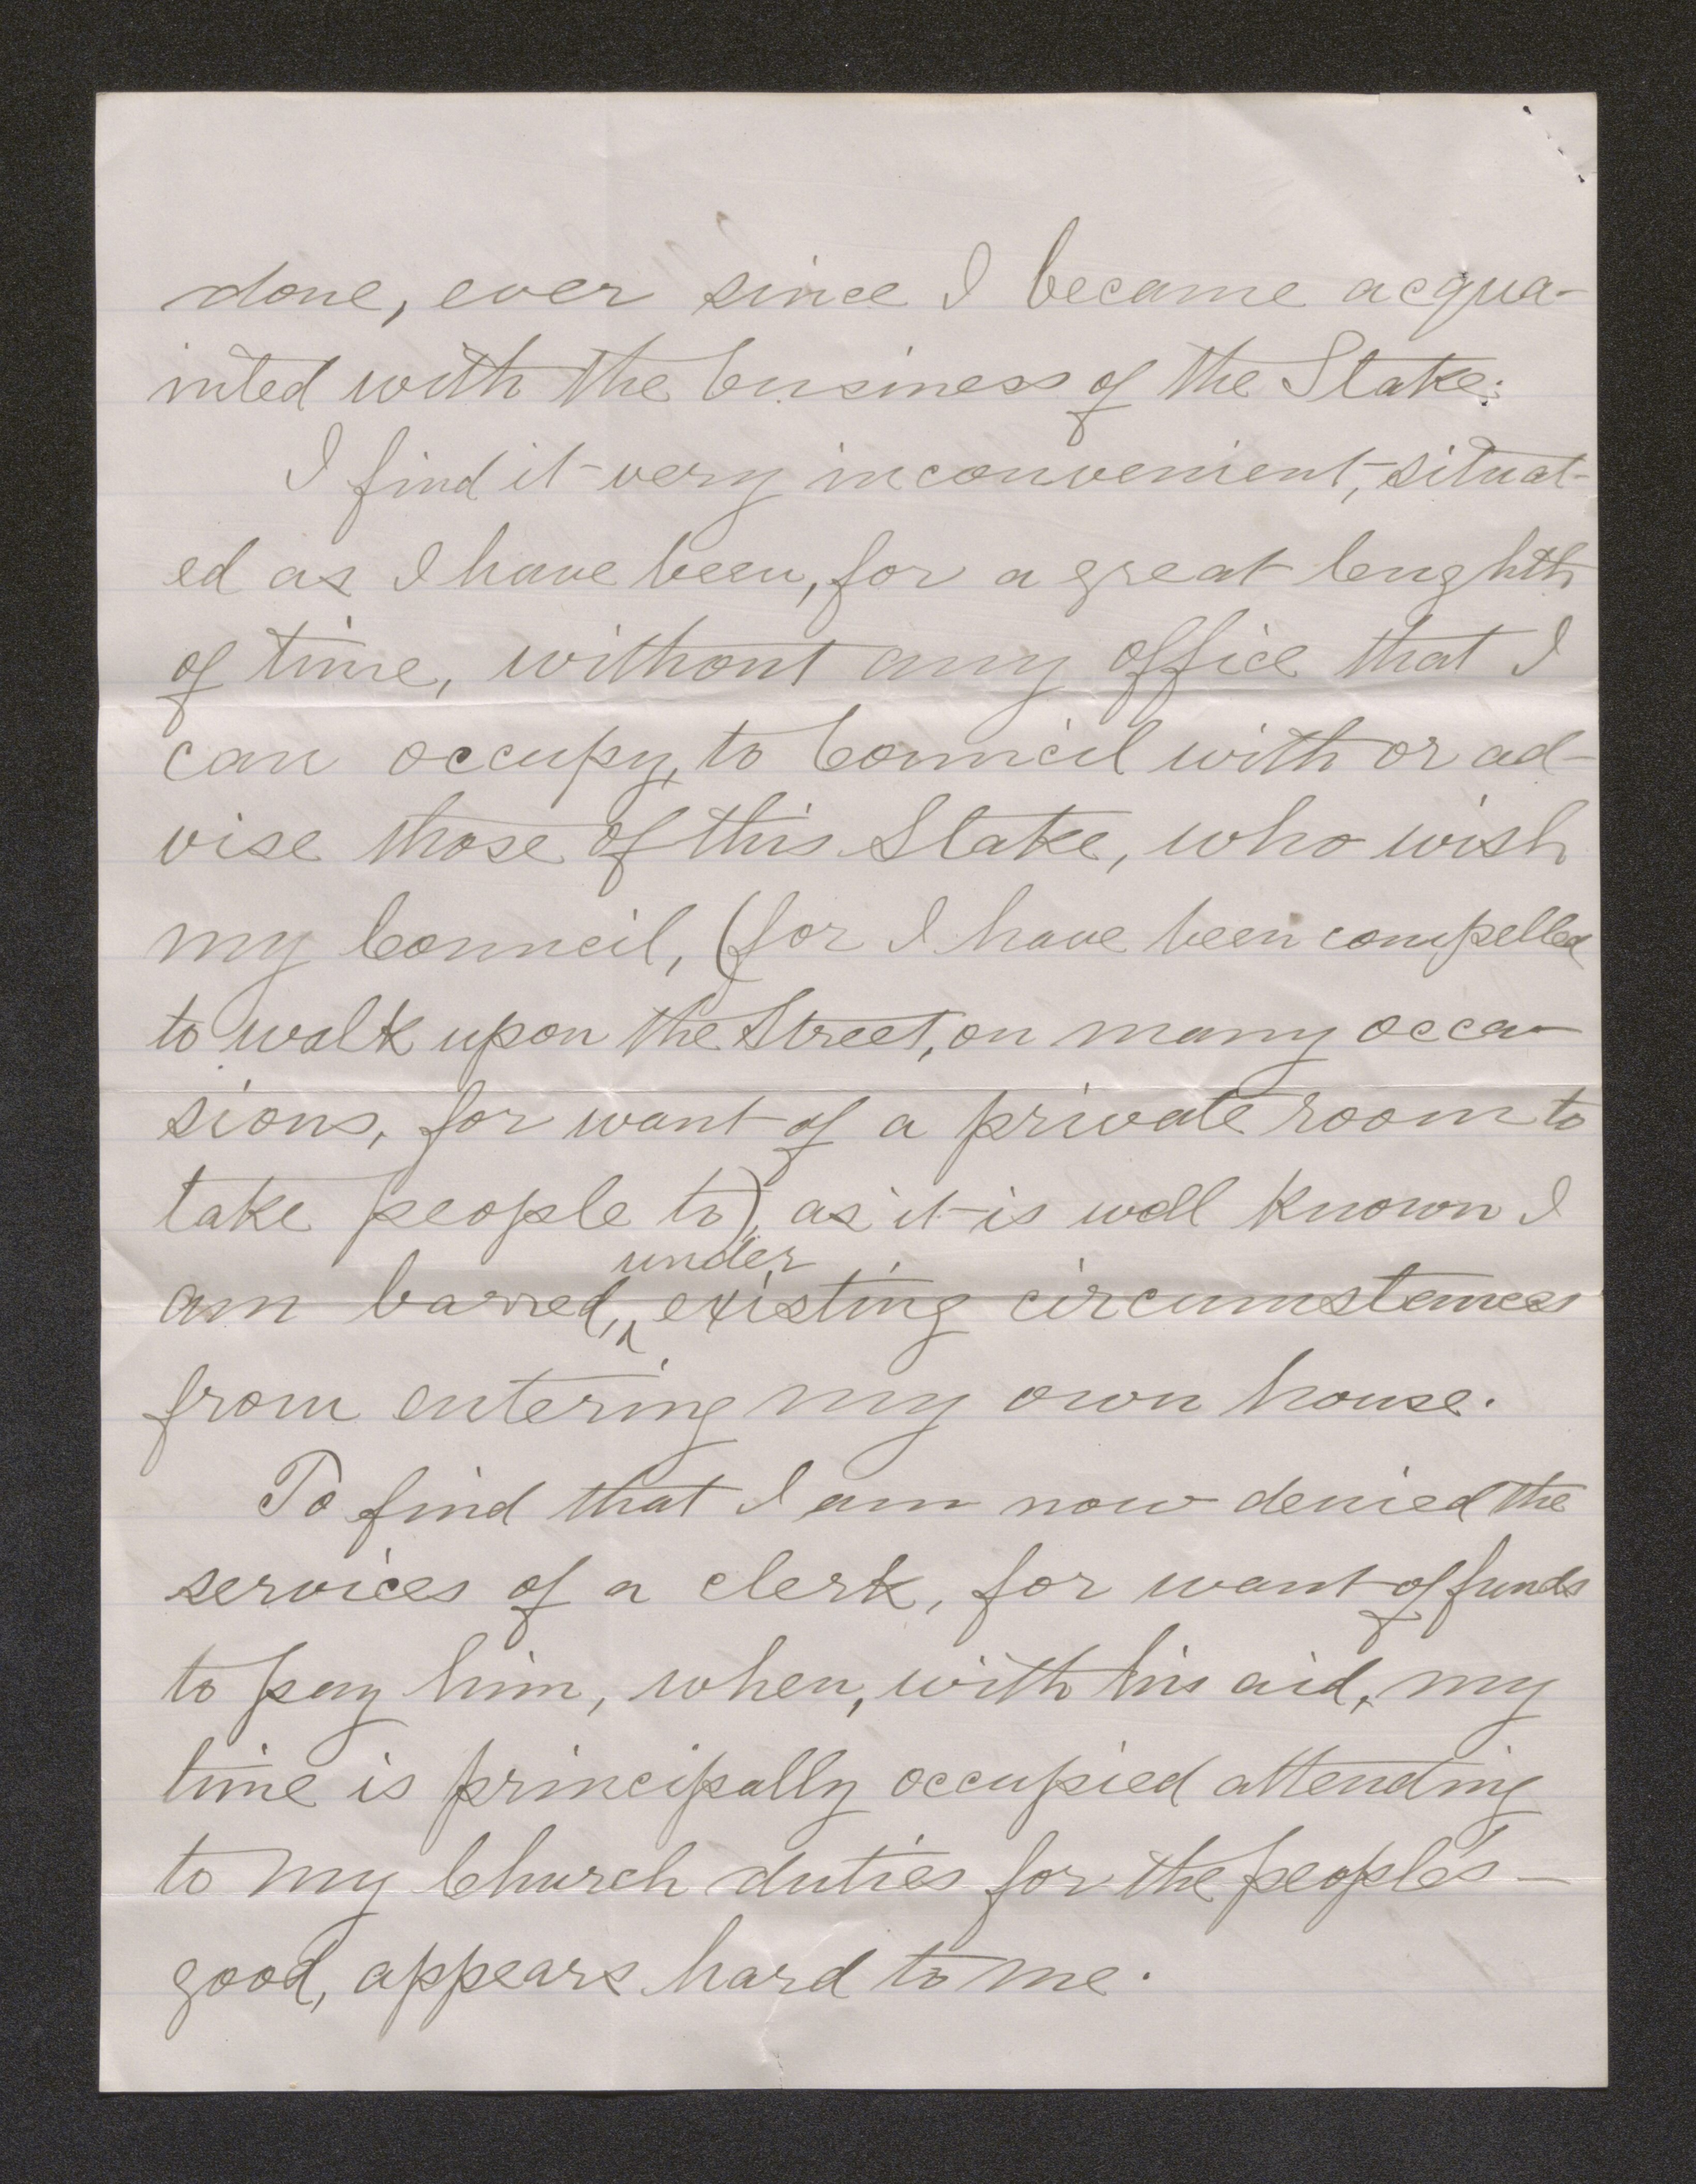 done, ever since I became acqua-
inted with the business of the Stake.
I find it very inconvenient, situat-
ed as I have been, for a great lenghth
of time, without any office that I
can occupy, to Council with or ad-
vise those of this Stake, who wish
my Council, (for I have been compelled
to walk upon the Street, on many occa-
sions, for want of a private room to
take people to), as it is well known I
under
am barred, ^ existing circumstances
from entering my own house.
To find that I am now denied the
services of a clerk, for want of funds
to pay him, when, with his aid, my
time is principally occupied attending
to my Church duties for the people's-
good, appears hard to me.